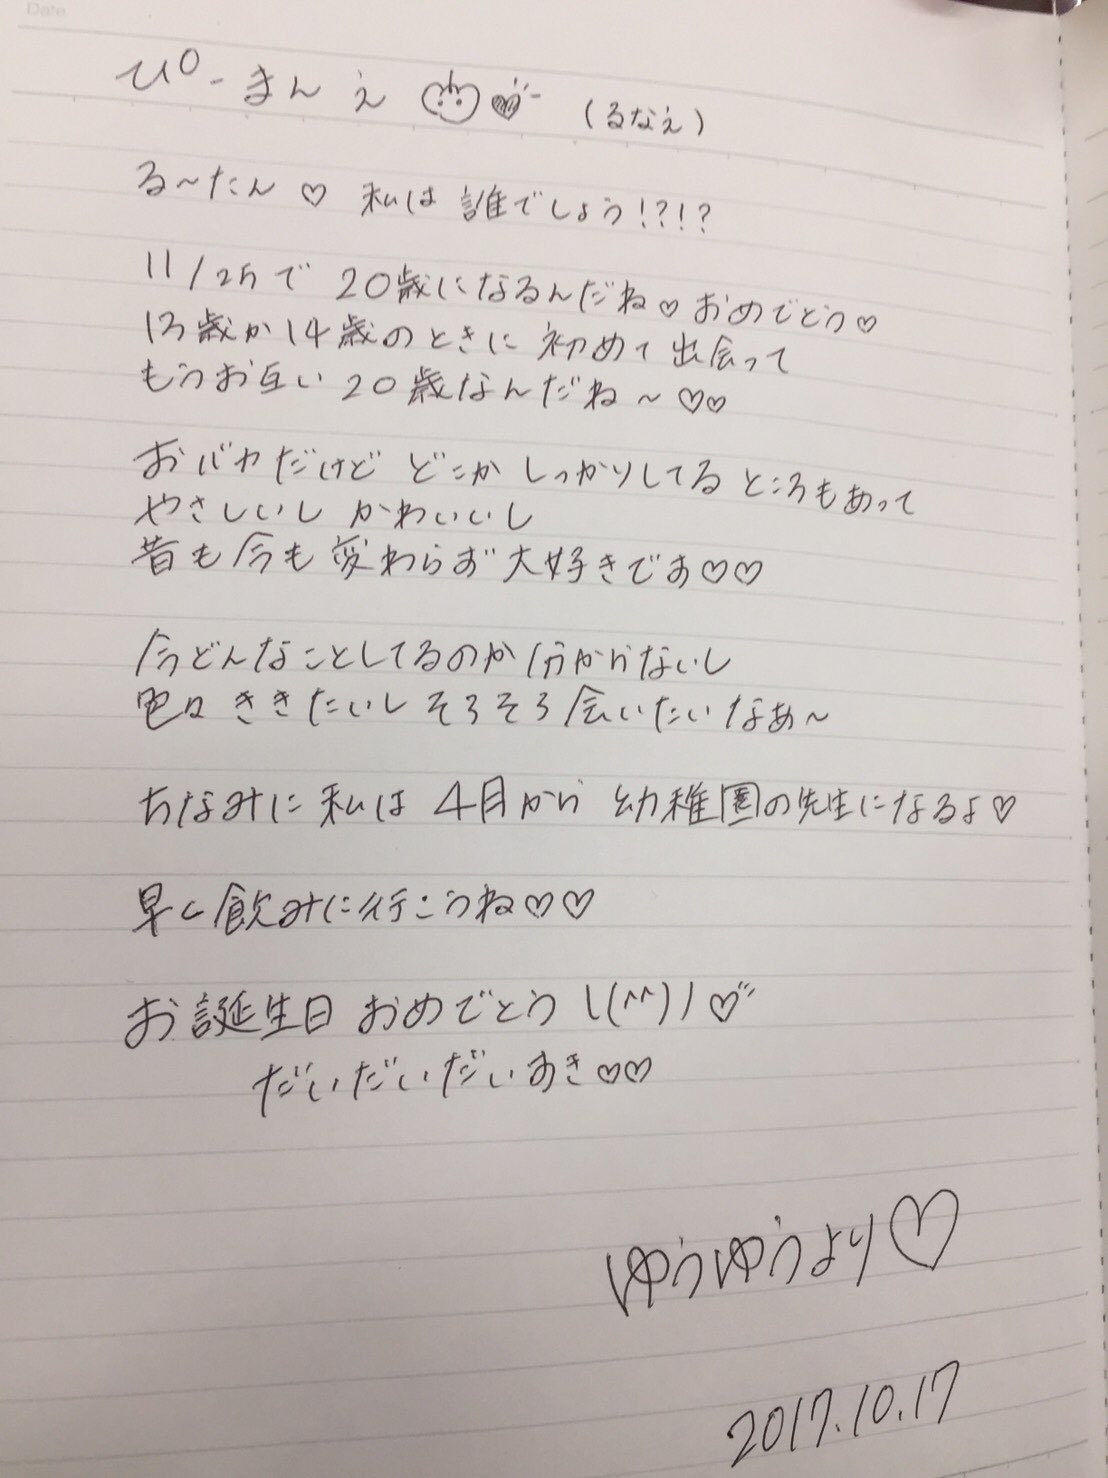 Date
ぴーまんえ♡ (るなえ)
る〜たん♡ 私は誰でしょう!?!?
11/25で 20歳になるんだね♡おめでとう♡
13歳か14歳のときに 初めて出会って
もうお互い20歳なんだね〜♡♡
おバカだけど どこか しっかりしてる ところもあって
やさしいし かわいいし
昔も今も変わらず大好きです♡♡
今どんなことしてるのか分からないし
色々ききたいし そろそろ会いたいなぁ〜
ちなみに私は4月から 幼稚園の先生になるよ♡
早く飲みに行こうね♡♡
お誕生日おめでとう \(^^)/♡
だいだいだいすき♡♡
ゆうゆうより♡
2017.10.17